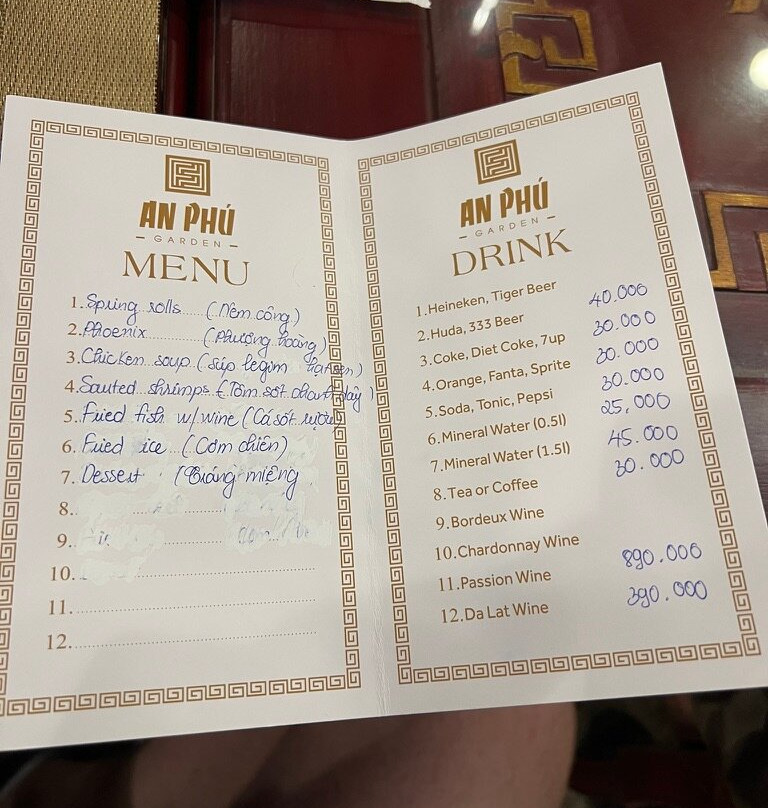 AN PHÚ
GARDEN
MENU
1. Spring rolls (Nem công)
2. Phoenix (Phượng hoàng)
3. Chicken soup (súp legim
4. Sauted shrimps (Tôm sốt chanh dây)
5. Fried fish w/ wine (Cá sốt rượu)
6. Fried ice (Cơm chiên)
7. Dessert (Tráng miệng
8.
9.
10.
11.
12.
AN PHÚ
GARDEN
DRINK
1. Heineken, Tiger Beer 40.000
2. Huda, 333 Beer 30.000
3. Coke, Diet Coke, 7up 30.000
4. Orange, Fanta, Sprite 30.000
5. Soda, Tonic, Pepsi 25,000
6. Mineral Water (0.5l) 45.000
7. Mineral Water (1.5l) 30.000
8. Tea or Coffee
9. Bordeux Wine
10. Chardonnay Wine 890.000
11. Passion Wine 390.000
12. Da Lat Wine